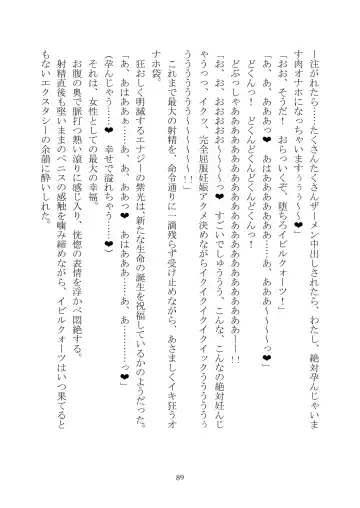 ー注がれたら……たくさんたくさんザーメン中出しされたら、わたし、絶対孕んじゃいま
す肉オナホになっちゃいますぅぅぅ〜〜〜♥」
「おお、そうだ！　おらっいくぞ、堕ちろイビルクォーツ！」
「あ、あ、ああたっ♥　あはああああああ……あ、あああ〜〜〜〜っ♥」
どくんっ！　どくんどくんどくんどくんっ！
どぶっしゃああああああああああああああああああああああああああーー！！
「お、お、おおおおお〜〜〜〜♥　すごいでしゅううう、こんな、こんなの絶対妊んじ
ゃうっっ、イクッ、完全屈服妊娠アクメ決めながらイクイクイクイクイックうううううぅ
うううううう〜〜〜〜〜〜！！」
これまで最大の射精を、命令通りに一滴残らず受け止めながら、あさましくイキ狂うオ
ナホ袋。
狂おしく明滅するエナジーの紫光は、新たな生命の誕生を祝福しているかのようだった。
「あ、あはああぁ……あ、あ、ああっ♥　あはあああ……あ、あ、…………っ♥」
（孕んじゃう……♥　幸せで溢れちゃう……♥）
それは、女性としての最大の幸福。
お腹の奥で脈打つ熱い滾りに感じ入り、恍惚の表情を浮かべ悶絶する。
射精直後も堅いままのペニスの感触を噛み締めながら、イビルクォーツはいつ果てると
もないエクスタシーの余韻に酔いしれた。
89